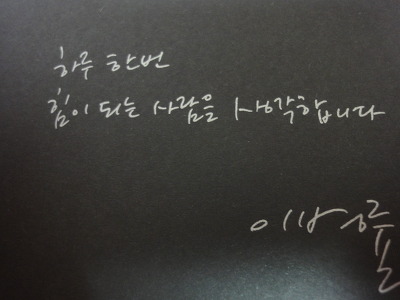 하루 한번
힘이 되는 사람을 생각합니다